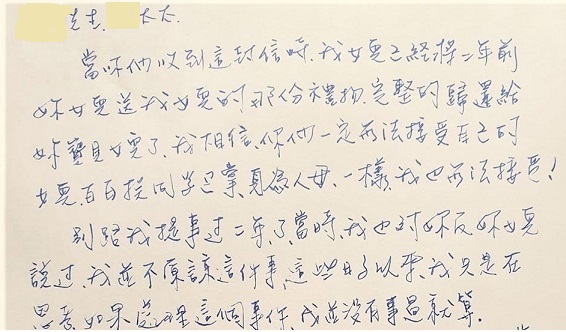 先生、太太
當你們收到這封信時，我女兒已經將二年前
妳女兒送我女兒的那份禮物，完整的歸還給
妳寶貝女兒了，我相信，你們一定無法接受自己的
女兒，百百挨同學巴掌，身為人母，一樣，我也無法接受！
別跟我提事過二年了，當時，我也對妳及妳女兒
說過，我並不原諒這件事，這些日子以來，我只是在
思考，如果處理這個事件，我並沒有事過就算.